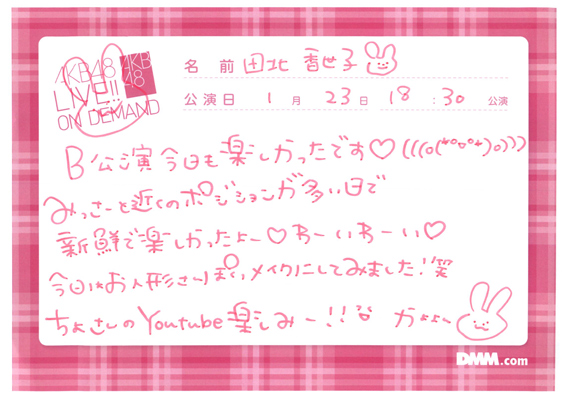 AKB48
LIVE!!
ON DEMAND
AKB
48
名 前 田北 香世子
公演日 1 月 23 日 18 : 30 公演
B公演今日も楽しかったです♡(((o(*ﾟ▽ﾟ*)o)))
みっさーと近くのポジションが多い日で
新鮮で楽しかったよー♡わーいわーい♡
今日はお人形さんぽいメイクにしてみました!笑
ちよさんのYoutube楽しみー!!
かよよー
DMM.com